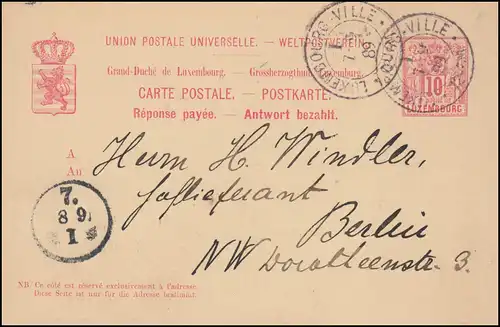 UNION POSTALE UNIVERSELLE. – WELTPOSTVEREIN.
Grand-Duché de Luxembourg. – Grossherzogthum Luxemburg.
CARTE POSTALE. – POSTKARTE.
Réponse payée. – Antwort bezahlt.
LUXEMBOURG-VILLE
10
LUXEMBOURG
A
An
Herrn H. Windler,
Hoflieferant
Berlin
NW Dorotheenstr. 3.
7.
8 9
I
NB. Ce côté est réservé exclusivement à l'adresse.
Diese Seite ist nur für die Adresse bestimmt.